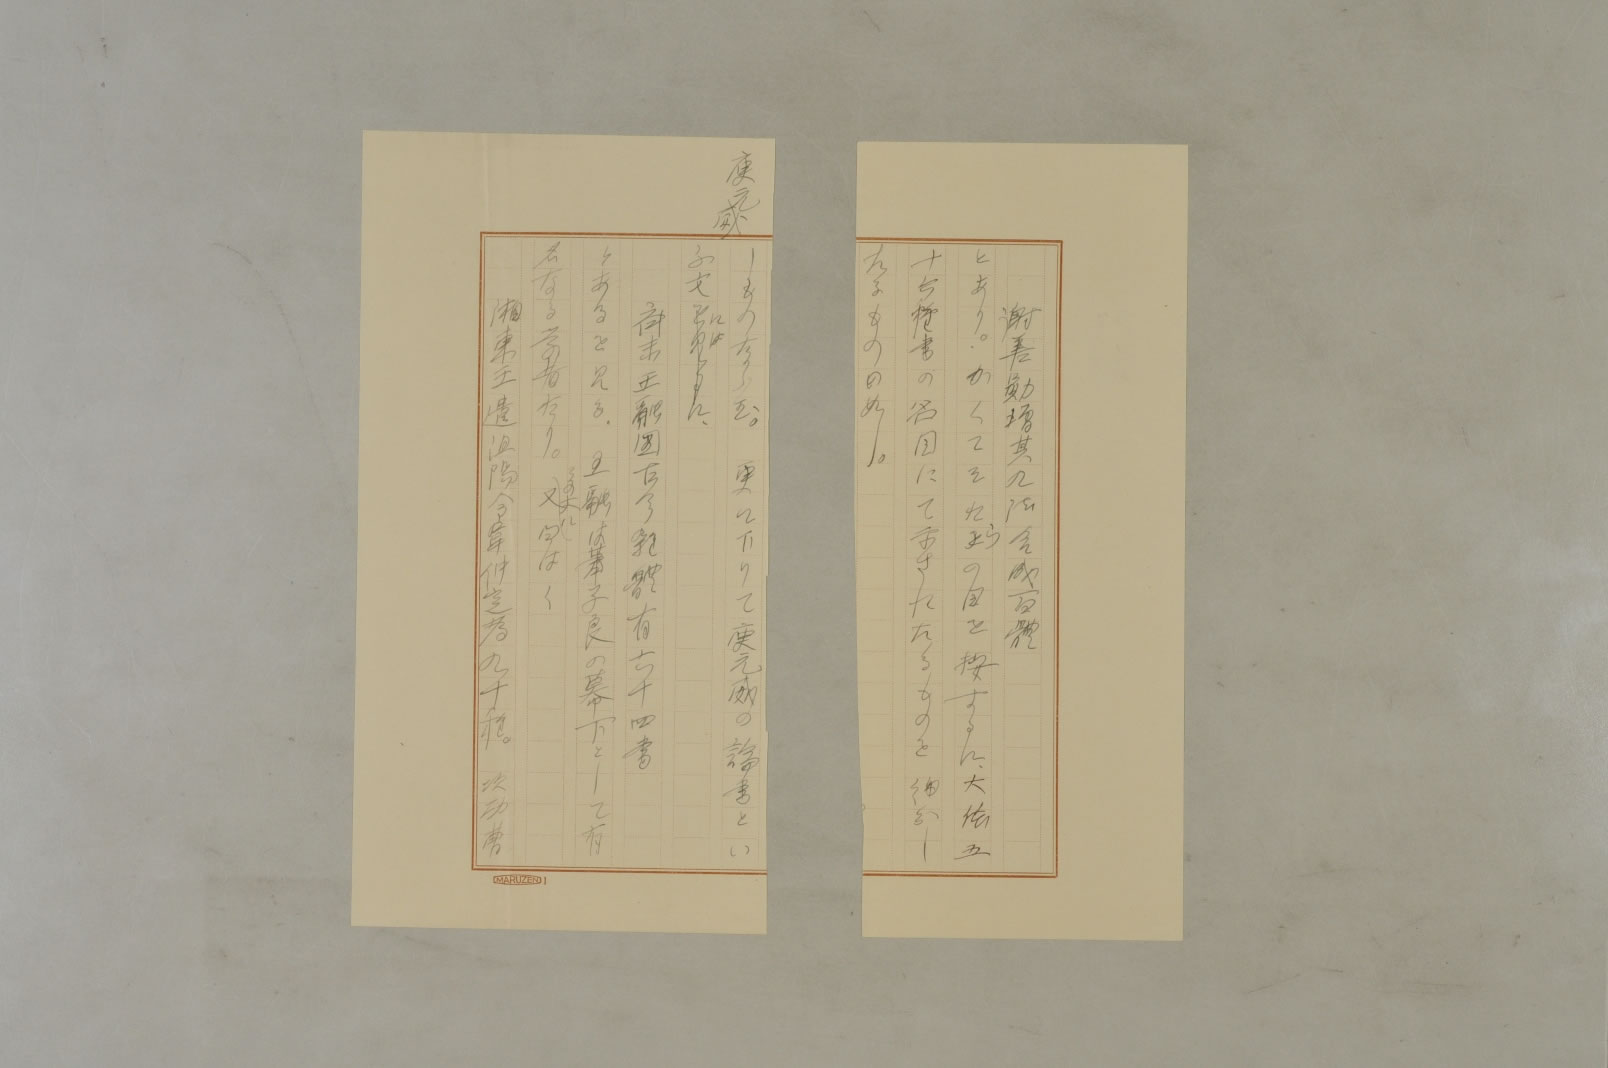 謝善勛増其九法合成百體
とあり。かくてそれらの目を按するに、大低五
十六種書の名目にて示されたるものを細分し
たるものの如し。
庾元威
しものならむ。更に下りて庾元威の論書とい
ふ文には
齊末王融圖古今雜體有六十四書
とあると見る。王融は蕭子良の幕下として有
名なる学者たり。又曰はく
その次に
湘東王遣沮陽令韋仲定為九十種。次功曹
MARUZEN